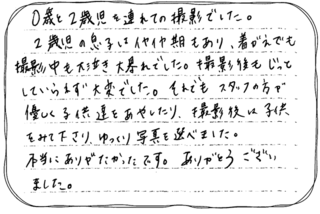 0歳と2歳児を連れての撮影でした。
2歳児の息子はイヤイヤ期もあり、着がえでも
撮影中も大泣き大暴れでした。撮影後もじっと
していられず大変でした。それでもスタッフの方が
優しく子供達をあやしたり、撮影後は子供
をみて下さり、ゆっくり写真を選べました。
本当にありがたかったです。ありがとうござい
ました。